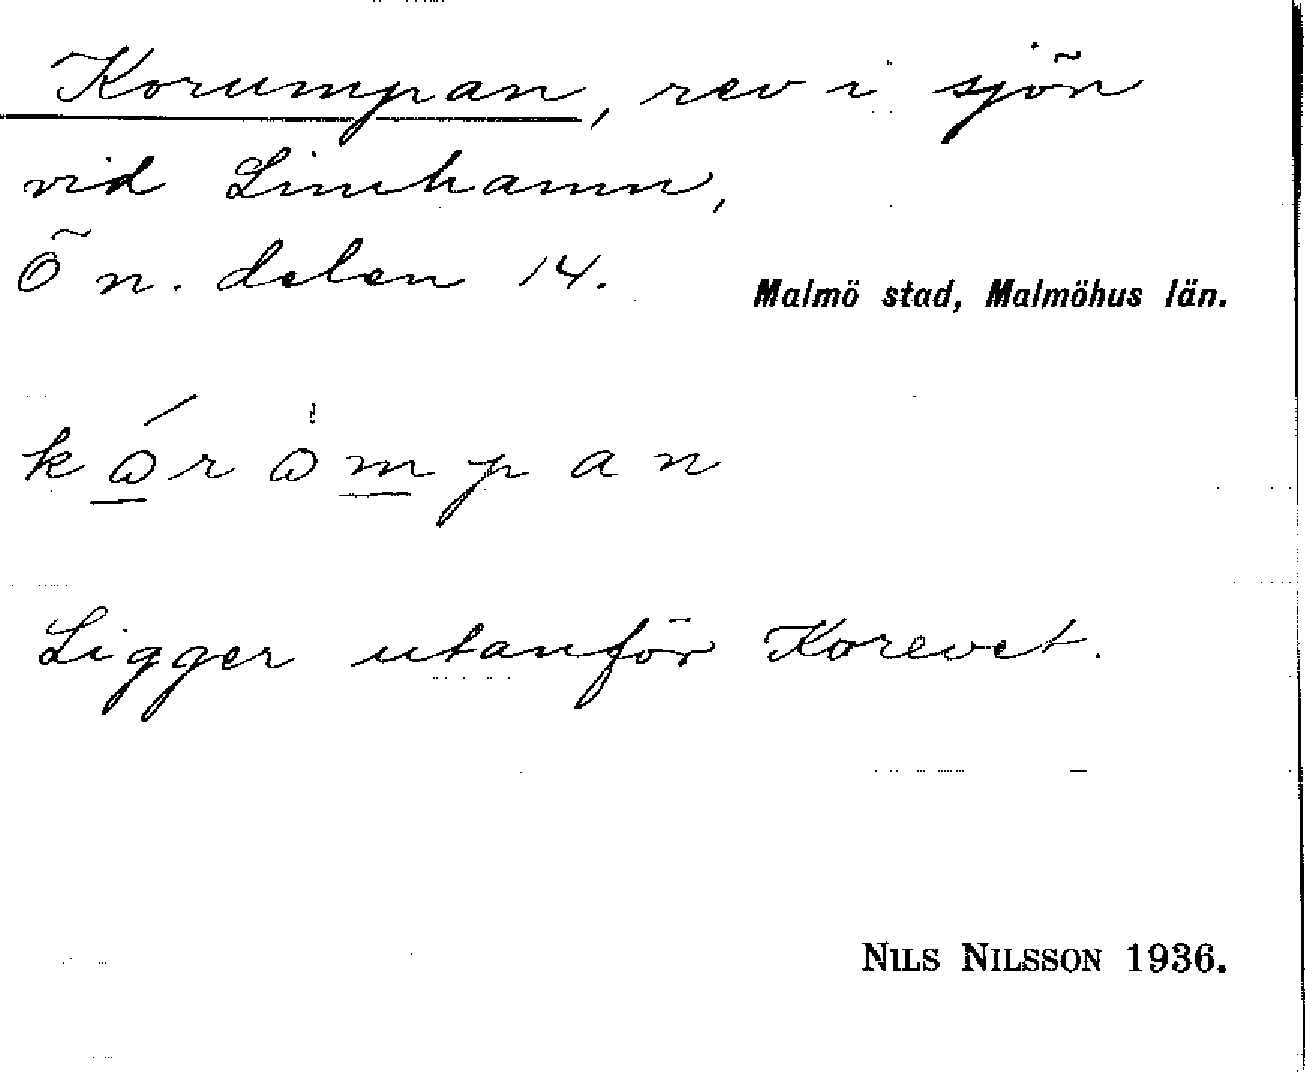 Korumpan, rev i sjön
vid Limhamn,
Ö n. delen 14.
Malmö stad, Malmöhus län.
Ligger utanför Korevet.
NILS NILSSON 1936.